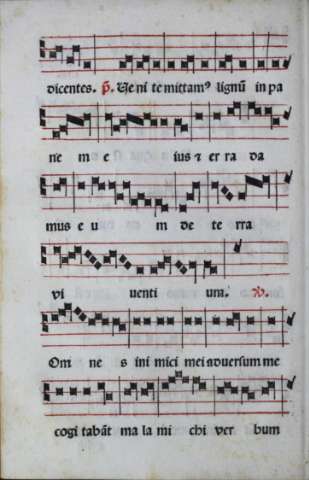 dicentes. ꝶ. Ve ni te mittamꝰ lignũ in pa
ne m e ius ⁊ er ra da
mus e u m de te rra
vi uenti um. ℣.
Om ne s ini mici mei aduersum me
cogi tabãt ma la mi chi ver bum